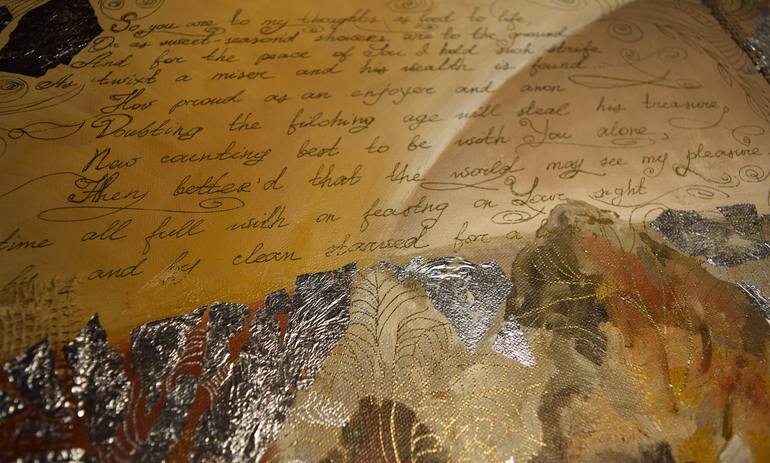 So you are to my thoughts as food to life,
Or as sweet-seasond showers are to the ground
And for the peace of You I hold such strife
As twixt a miser and his wealth is found.
Now proud as an enjoyer and anon
Doubting the filching age will steal his treasure,
Now counting best to be with You alone,
Then better'd that the world may see my pleasure.
time all full with on feasting on Your sight
and by clean starved for a